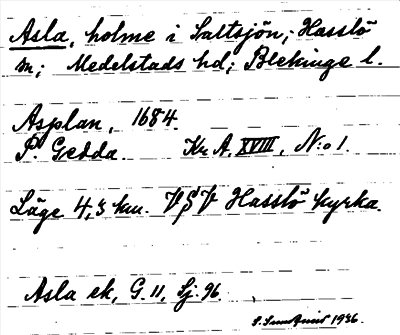 Asla, holme i Saltsjön; Hasslö
m; Medelstads hd; Blekinge l.
Asplan, 1684.
P. Gedda. Kr. A. XVIII, N:o 1.
Läge 4,3 km. VSV Hasslö kyrka.
Asla ek, G. 11, Sj: 96.
1936.